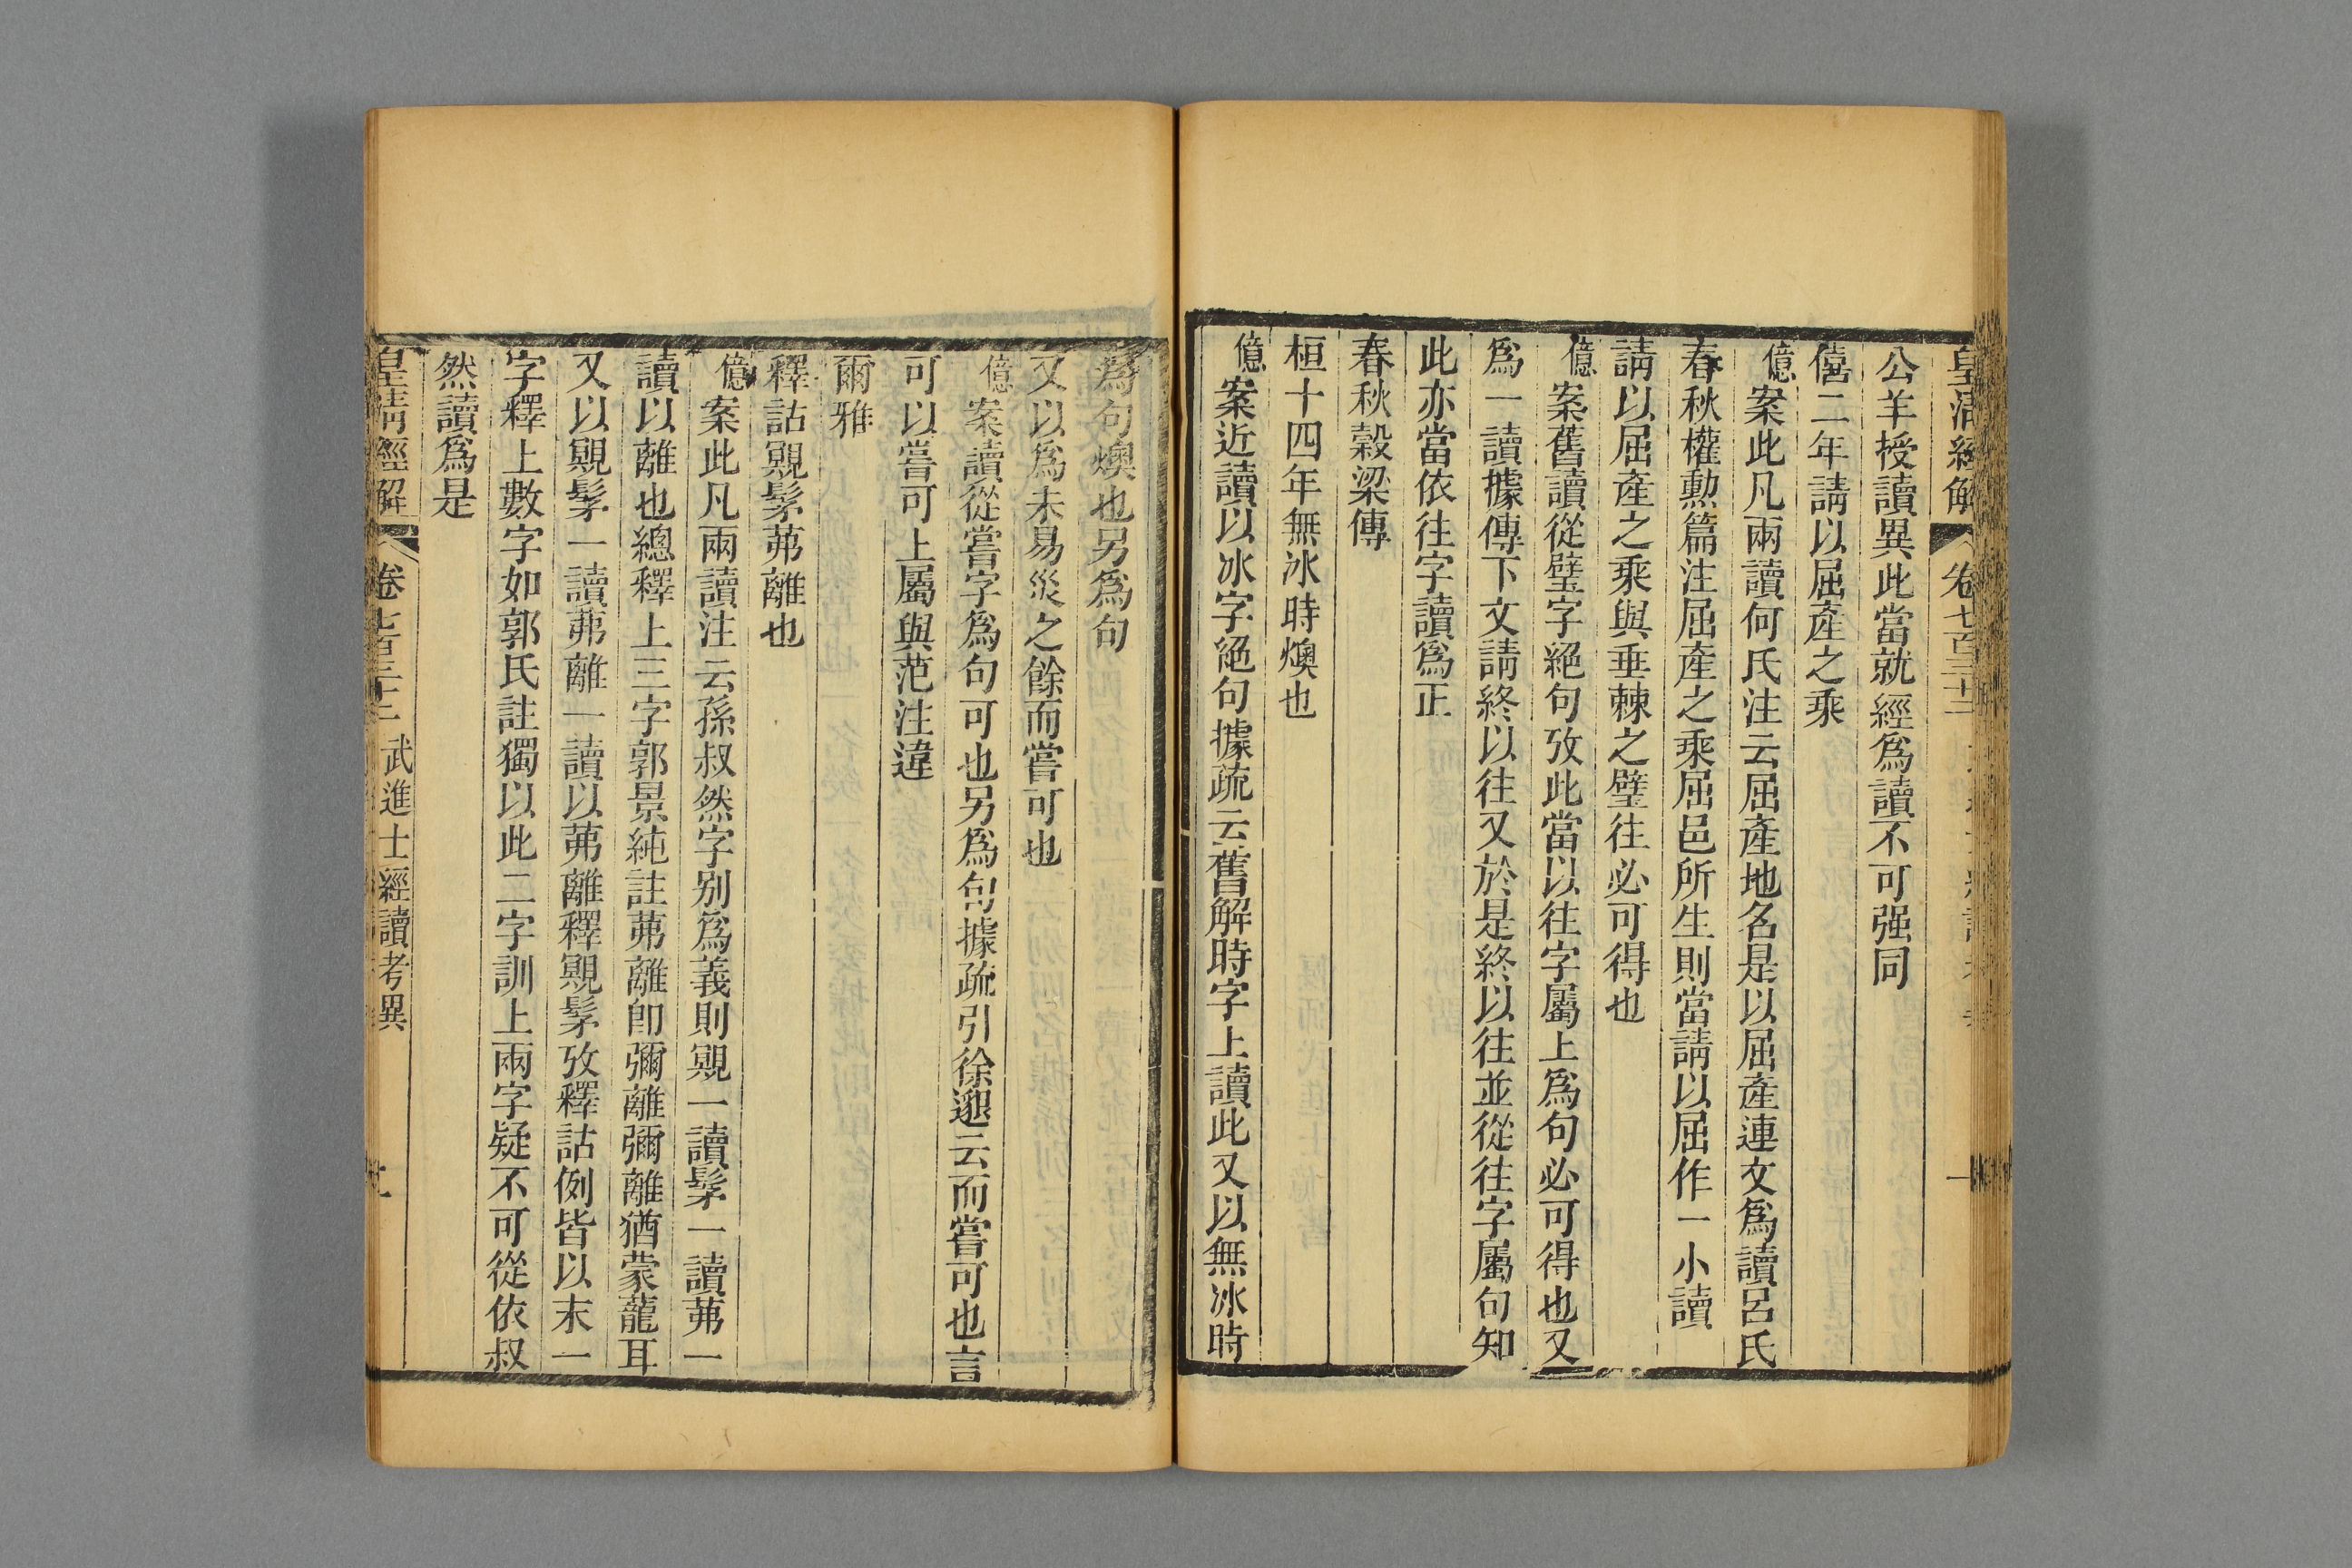 皇清經解 卷七百三十二
公羊授讀異此當就經爲讀不可强同
僖二年請以屈產之乘
億案此凡兩讀何氏注云屈產地名是以屈產連文爲讀呂氏
春秋權勲篇注屈產之乘屈邑所生則當請以屈作一小讀
請以屈產之乘與垂棘之璧往必可得也
億案舊讀從璧字絕句攷此當以往字屬上爲句必可得也又
爲一讀據傳下文請終以往又於是終以往並從往字屬句知
此亦當依往字讀爲正
春秋穀梁傳
桓十四年無冰時燠也
億案近讀以冰字絕句據疏云舊解時字上讀此又以無冰時
爲句燠也另爲句
又以爲未易災之餘而嘗可也
億案讀從嘗字爲句可也另爲句據疏引徐邈云而嘗可也言
可以嘗可上屬與范注違
爾雅
釋詁覭髳茀離也
億案此凡兩讀注云孫叔然字別爲義則覭一讀髳一讀茀一
讀以離也總釋上三字郭景純註茀離卽彌離彌離猶蒙蘢耳
又以覭髳一讀茀離一讀以茀離釋覭髳攷釋詁例皆以末一
字釋上數字如郭氏註獨以此二字訓上兩字疑不可從依叔
然讀爲是
皇清經解 卷七百三十二 武進士經讀考異